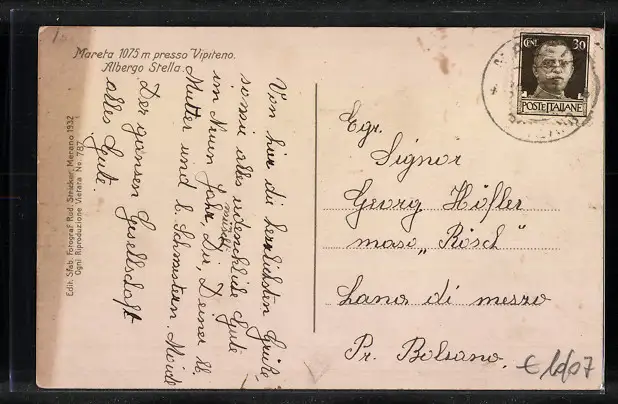 Mareta 1075 m presso Vipiteno.
Albergo Stella.
Von hier die herzlichsten Grüße,
sowie alles erdenkliche Gute
im Neuen Jahr, Dir, Deiner lb.
Mutter und lb. Schwestern.
Der ganzen Gesellschaft
alles Gute.
Edit. Stab. Fotograf. Rud. Stricker, Merano 1932
Ogni Riproduzione Vietata No 787
CENT. 30
POSTE ITALIANE
Egr.
Signor
Georg Höfler
maso „Rösch"
Lana di mezzo
Pr. Bolzano.